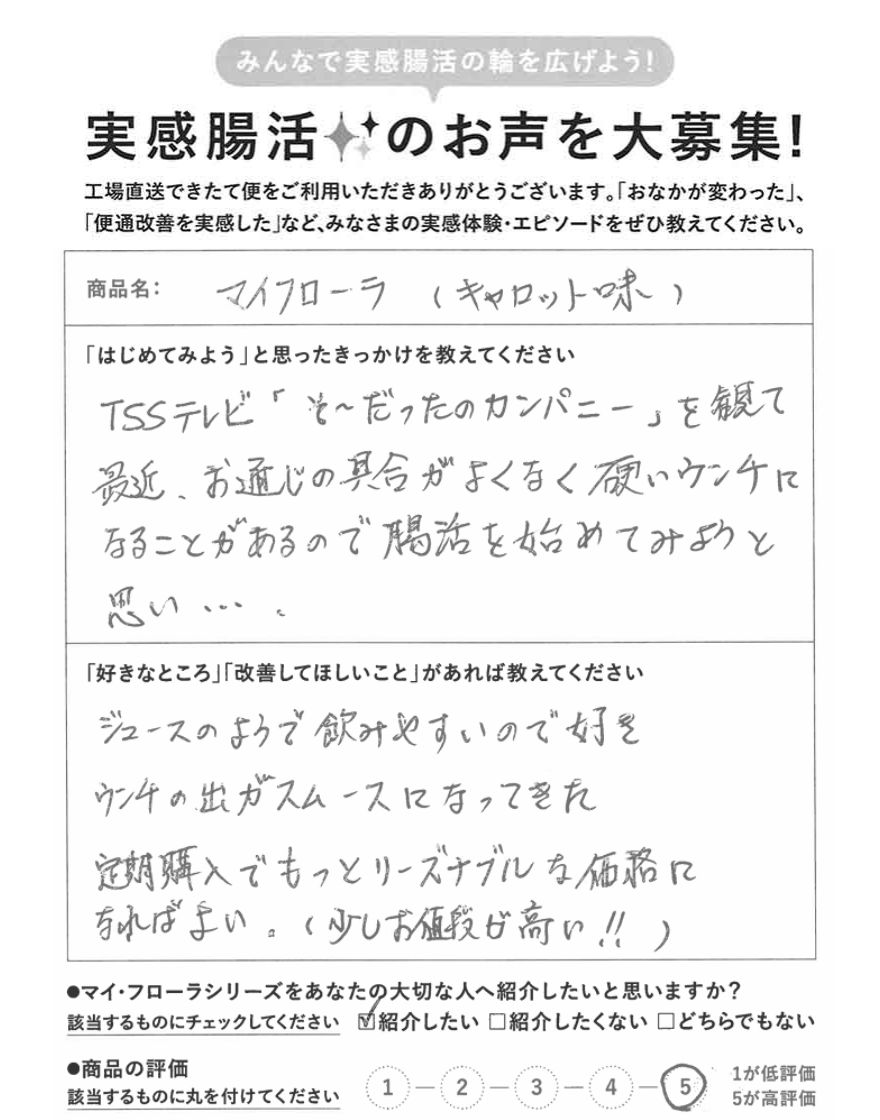 みんなで実感腸活の輪を広げよう!
実感腸活のお声を大募集!
工場直送できたて便をご利用いただきありがとうございます。「おなかが変わった」、
「便通改善を実感した」など、みなさまの実感体験・エピソードをぜひ教えてください。
商品名: マイフローラ (キャロット味)
「はじめてみよう」と思ったきっかけを教えてください
TSSテレビ「そ〜だったのカンパニー」を観て
最近、お通じの具合がよくなく硬いウンチに
なることがあるので腸活を始めてみようと
思い…。
「好きなところ」「改善してほしいこと」があれば教えてください
ジュースのようで飲みやすいので好き
ウンチの出がスムースになってきた
定期購入でもっとリーズナブルな価格に
なればよい。(少しお値段が高い!!)
●マイ・フローラシリーズをあなたの大切な人へ紹介したいと思いますか?
該当するものにチェックしてください ☑紹介したい □紹介したくない □どちらでもない
●商品の評価
該当するものに丸を付けてください 1 2 3 4 5
1が低評価
5が高評価